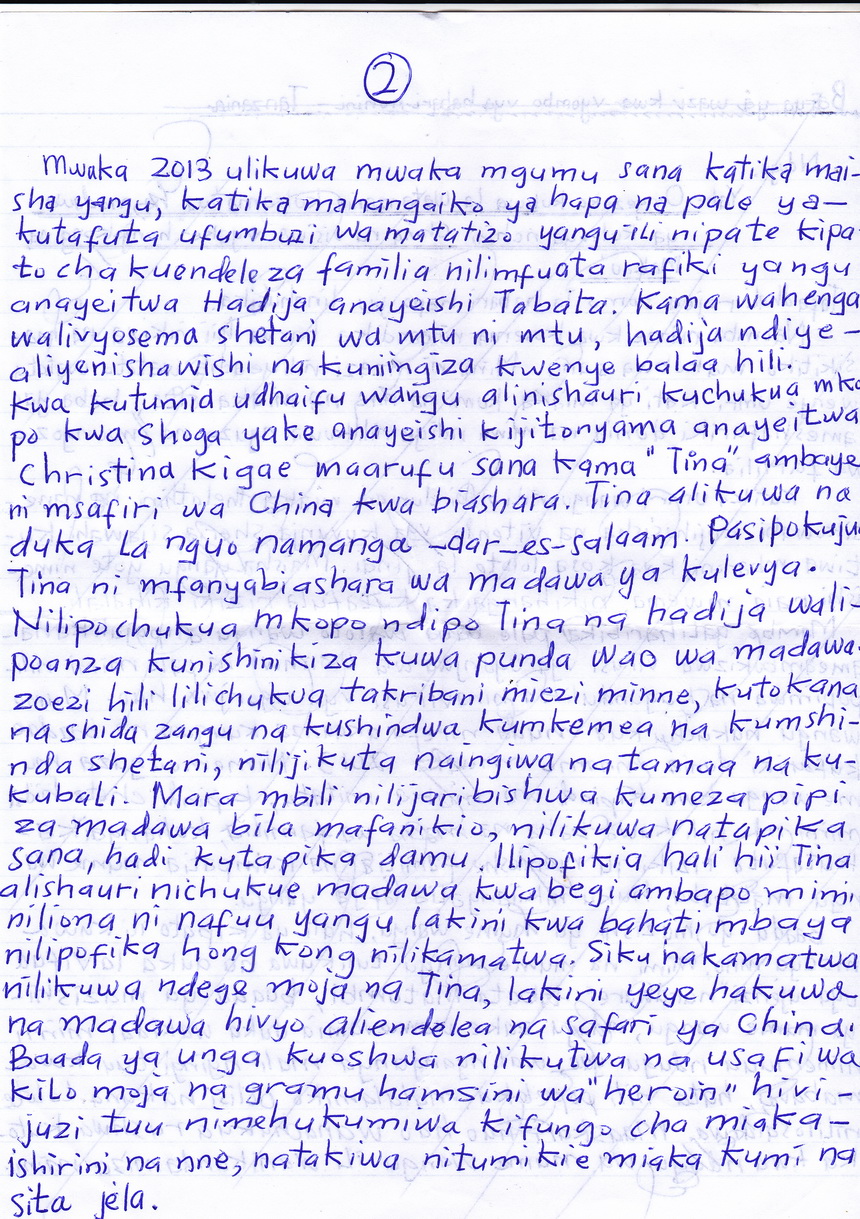 2
Mwaka 2013 ulikuwa mwaka mgumu sana katika mai-
sha yangu, katika mahangaiko ya hapa na pale ya-
kutafuta ufumbuzi wa matatizo yangu ili nipate kipa
to cha kuendeleza familia nilimfuata rafiki yangu
anayeitwa Hadija anayeishi Tabata. Kama wahenga
walivyosema shetani wa mtu ni mtu, hadija ndiye-
aliyenishawishi na kuniingiza kwenye balaa hili.
kwa kutumia udhaifu wangu alinishauri kuchukua mko
po kwa Shoga yake anayeishi kijitonyama anayeitwa
Christina Kigae maarufu sana kama "Tina" ambaye
ni msafiri wa China kwa biashara. Tina alikuwa na
duka la nguo namanga -dar-es-salaam. Pasipokujua
Tina ni mfanyabiashara wa madawa ya kulevya.
Nilipochukua mkopo ndipo Tina na hadija wali-
poanza kunishinikiza kuwa punda wao wa madawa.
zoezi hili lilichukua takribani miezi minne, kutokana
na shida zangu na kushindwa kumkemea na kumshi-
nda shetani, nilijikuta naingiwa na tamaa na ku-
kubali. Mara mbili nilijaribishwa kumeza pipi
za madawa bila mafanikio, nilikuwa natapika
sana, hadi kutapika damu. Ilipofikia hali hii Tina
alishauri nichukue madawa kwa begi ambapo mimi
niliona ni nafuu yangu lakini kwa bahati mbaya
nilipofika hong kong nilikamatwa. Siku nakamatwa
nilikuwa ndege moja na Tina, lakini yeye hakuwa
na madawa hivyo aliendelea na safari ya China.
Baada ya unga kuoshwa nilikutwa na usafi wa
kilo moja na gramu hamsini wa "heroin" hivi-
juzi tuu nimehukumiwa kifungo cha miaka-
ishirini na nne, natakiwa nitumikie miaka kumi na
sita jela.